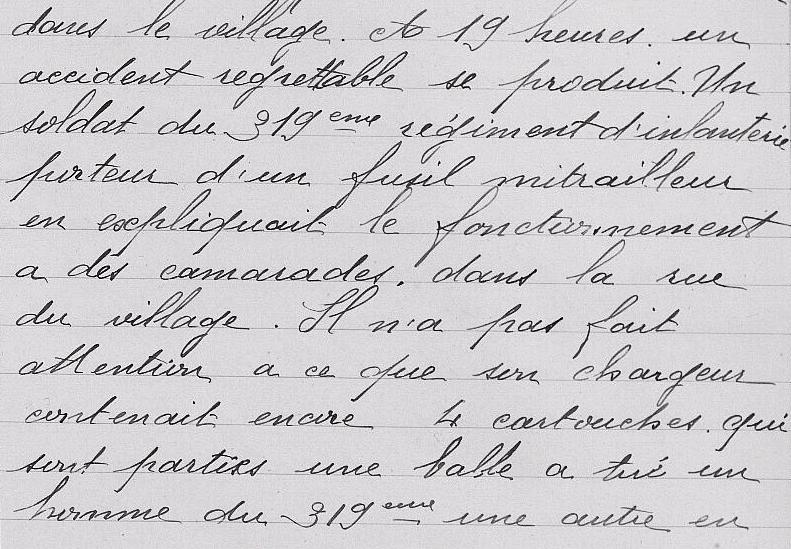 dans le village. A 19 heures. un
accident regrettable se produit. Un
soldat du 319eme régiment d'infanterie
porteur d'un fusil mitrailleur
en expliquait le fonctionnement
a des camarades. dans la rue
du village. Il n'a pas fait
attention a ce que son chargeur
contenait encore 4 cartouches. qui
sont parties une balle a tué un
homme du 319eme une autre en